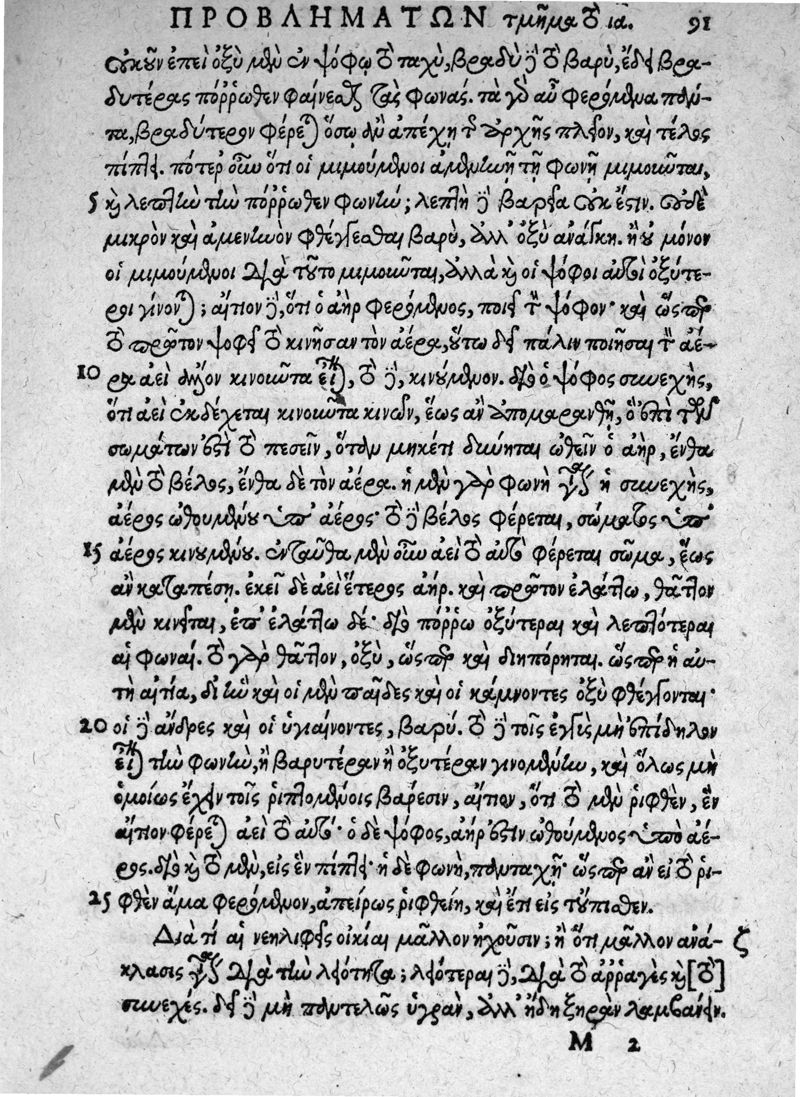 ΠΡΟΒΛΗΜΑΤΩΝ τμῆμα τὸ ια. 91
οὐκοῦν ἐπεὶ ὀξὺ μὲν ἐν ψόφῳ τὸ ταχὺ, βραδὺ δὲ τὸ βαρὺ, ἔδει βρα-
δυτέρας πόῤῥωθεν φαίνεσθαι τὰς φωνάς. τὰ γὰρ αὖ φερόμενα πάν-
τα, βραδύτερον φέρεται ὅσῳ ἂν ἀπέχῃ τῆς ἀρχῆς πλεῖον, καὶ τέλος
πίπτει. πότερον οὖν ὅτι οἱ μιμούμενοι ἀμενηνῇ τῇ φωνῇ μιμοῦνται,
5 καὶ λεπτὴν τὴν πόῤῥωθεν φωνήν; λεπτὴ δὲ βαρεῖα οὐκ ἔστιν. οὐδὲ
μικρὸν καὶ ἀμενηνὸν φθέγγεσθαι βαρὺ, ἀλλ' ὀξὺ ἀνάγκη. ἢ οὐ μόνον
οἱ μιμούμενοι διὰ τοῦτο μιμοῦνται, ἀλλὰ καὶ οἱ ψόφοι αὐτοὶ ὀξύτε-
ροι γίνονται; αἴτιον δὲ, ὅτι ὁ ἀὴρ φερόμενος, ποιεῖ τὸν ψόφον· καὶ ὥσπερ
τὸ πρῶτον ψοφεῖ τὸ κινῆσαν τὸν ἀέρα, οὕτω δεῖ πάλιν ποιῆσαι τὸν ἀέ-
10 ρα ἀεὶ ἄλλον κινοῦντα εἶναι, τὸ δὲ, κινούμενον. διὸ ὁ ψόφος συνεχὴς,
ὅτι ἀεὶ ἐκδέχεται κινοῦντα κινῶν, ἕως ἂν ἀπομαρανθῇ, ὃ ἐπὶ τῶν
σωμάτων ἐστὶ τὸ πεσεῖν, ὅταν μηκέτι δύνηται ὠθεῖν ὁ ἀὴρ, ἔνθα
μὲν τὸ βέλος, ἔνθα δὲ τὸν ἀέρα. ἡ μὲν γὰρ φωνὴ γίνεται ἡ συνεχὴς,
ἀέρος ὠθουμένου ὑπ' ἀέρος· τὸ δὲ βέλος φέρεται, σώματος ὑπ'
15 ἀέρος κινουμένου. ἐνταῦθα μὲν οὖν ἀεὶ τὸ αὐτὸ φέρεται σῶμα, ἕως
ἂν καταπέσῃ. ἐκεῖ δὲ ἀεὶ ἕτερος ἀήρ. καὶ πρῶτον ἐλάττω, θᾶττον
μὲν κινεῖται, ἐπ' ἐλάττω δέ· διὸ πόῤῥω ὀξύτεραι καὶ λεπτότεραι
αἱ φωναί. τὸ γὰρ θᾶττον, ὀξὺ, ὥσπερ καὶ διηπόρηται. ὥσπερ ἡ αὐ-
τὴ αἰτία, δι' ἣν καὶ οἱ μὲν παῖδες καὶ οἱ κάμνοντες ὀξὺ φθέγγονται·
20 οἱ δὲ ἄνδρες καὶ οἱ ὑγιαίνοντες, βαρύ. τὸ δὲ τοῖς ἐγγὺς μὴ ἐπίδηλον
εἶναι τὴν φωνὴν, ἢ βαρυτέραν ἢ ὀξυτέραν γινομένην, καὶ ὅλως μὴ
ὁμοίως ἔχειν τοῖς ῥιπτομένοις βάρεσιν, αἴτιον, ὅτι τὸ μὲν ῥιφθὲν, ἓν
αἴτιον φέρεται ἀεὶ τὸ αὐτό· ὁ δὲ ψόφος, ἀήρ ἐστιν ὠθούμενος ὑπὸ ἀέ-
ρος. διὸ καὶ τὸ μὲν, εἰς ἓν πίπτει· ἡ δὲ φωνὴ, πανταχῆ· ὥσπερ ἂν εἰ τὸ ῥι-
25 φθὲν ἅμα φερόμενον, ἀπείρως ῥιφθείη, καὶ ἔτι εἰς τοὔπισθεν.
Διὰ τί αἱ νεηλιφεῖς οἰκίαι μᾶλλον ἠχοῦσιν; ἢ ὅτι μᾶλλον ἀνά- ζ
κλασις γίνεται διὰ τὴν λειότητα; λειότεραι δὲ, διὰ τὸ ἀῤῥαγὲς καὶ [τὸ]
συνεχές. δεῖ δὲ μὴ παντελῶς ὑγρὰν, ἀλλ' ἤδη ξηρὰν λαμβάνειν.
M 2